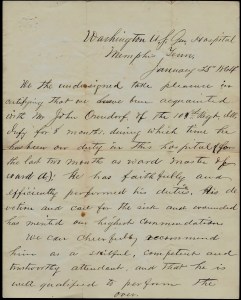 Washington U.S. Gen Hospital
Memphis Tenn
January 25" 1864
We the undersigned take pleasure in
certifying that we have been acquainted
with Mr John Orendorf of the 109" Regt. Ills
Infy for 8 months. during which time he
has been on duty in this hospital (for
the last two months as ward master of
ward A). He has faithfully and
efficiently performed his duties. His de
votion and care for the sick and wounded
has merited our highest commendation
We can cheerfully recommend
him as a skilful, competent and
trustworthy attendant, and that he is
well qualified to perform the
over